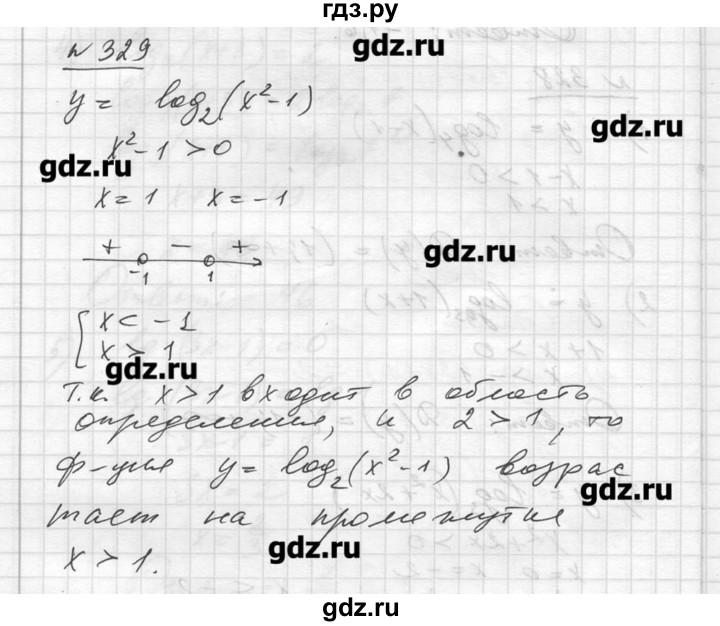 гдз.ру
gdz.ru
№ 329
y = log₂(x²-1)
gdz.ru
x²-1>0
gdz.ru
x=1 x=-1
+ - +
gdz.ru
-1 1
{ x < -1
x > 1
gdz.ru
Т.к. x>1 входит в область
определения, и 2>1, то
ф-ция y = log₂(x²-1) возрас
gdz.ru
тает на промежутке
gdz.ru
x > 1.
gdz.ru